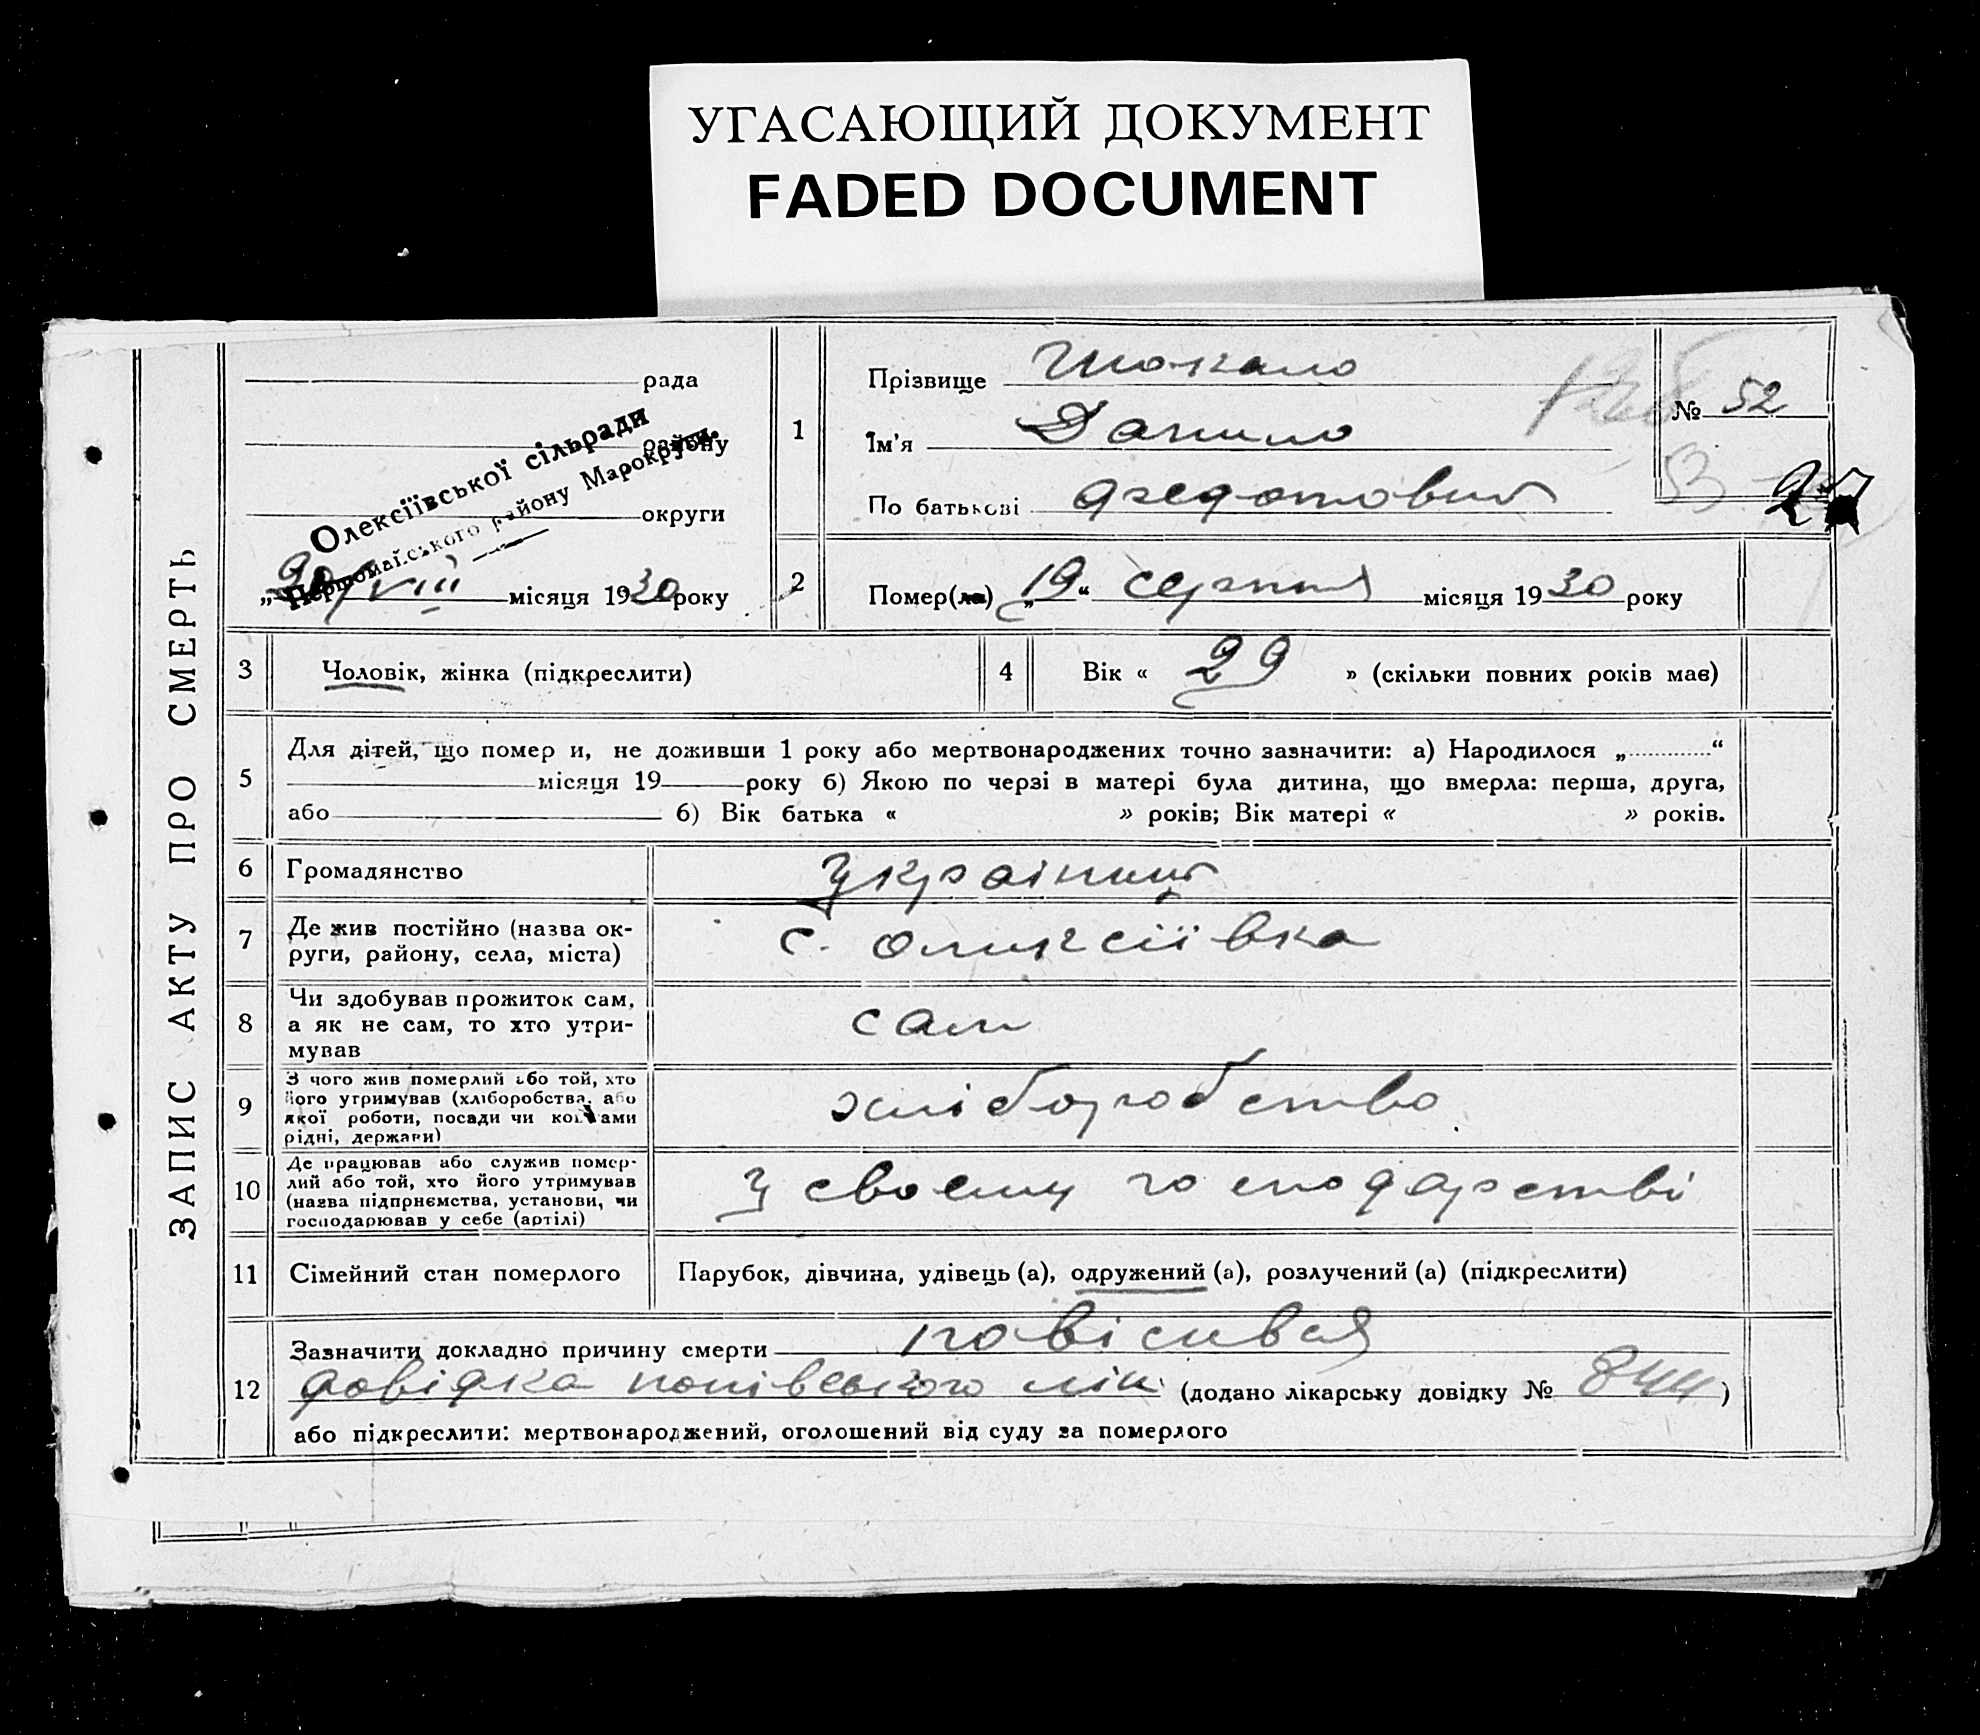 УГАСАЮЩИЙ ДОКУМЕНТ
FADED DOCUMENT
ЗАПИС АКТУ ПРО СМЕРТЬ
рада
району
округи
Олексіївської сільради
Первомаїського району Марокруги.
„30/VIII місяця 1930 року
1
Прізвище Шокало
Ім'я Данило
По батькові Федотович
№ 52
2
Помер(ла) „19“ серпня місяця 1930 року
3
Чоловік, жінка (підкреслити)
4
Вік « 29 » (скільки повних років має)
5
Для дітей, що помер и, не доживши 1 року або мертвонароджених точно зазначити: а) Народилося „ “
місяця 19 року б) Якою по черзі в матері була дитина, що вмерла: перша, друга,
або б) Вік батька « » років; Вік матері « » років.
6
Громадянство
українець
7
Де жив постійно (назва ок-
руги, району, села, міста)
с. Олексіївка
8
Чи здобував прожиток сам,
а як не сам, то хто утри-
мував
сам
9
З чого жив померлий або той, хто
його утримував (хліборобства, або
якої роботи, посади чи коштами
рідні, держави)
хліборобство
10
Де працював або служив помер-
лий або той, хто його утримував
(назва підприємства, установи, чи
господарював у себе (артілі)
У своєму господарстві
11
Сімейний стан померлого
Парубок, дівчина, удівець (а), одружений (а), розлучений (а) (підкреслити)
12
Зазначити докладно причину смерти повісився
довідка попівського лік. (додано лікарську довідку № 844)
або підкреслити: мертвонароджений, оголошений від суду за померлого